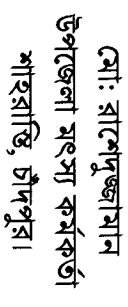 মো: রাশেদুজ্জামান
উপজেলা মৎস্য কর্মকর্তা
শাহরাস্তি, চাঁদপুর।